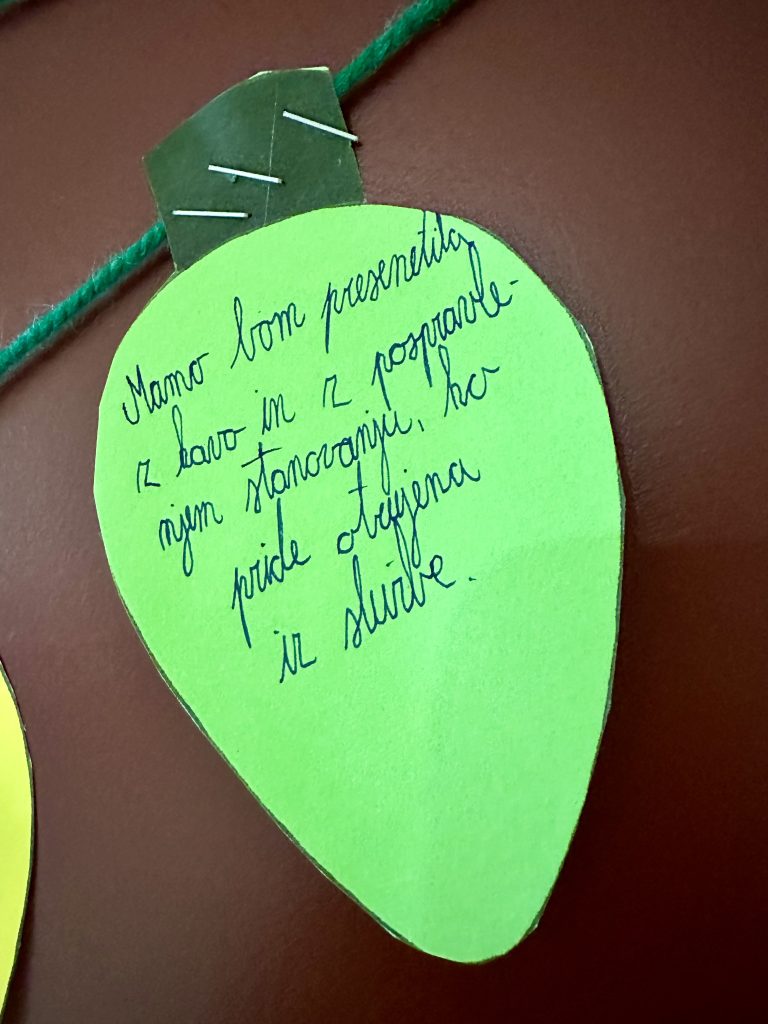 Mamo bom presenetila
z kavo in z pospravle-
njem stanovanju, ko
pride otrujena
iz službe.